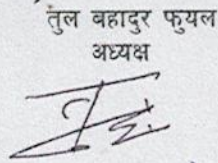 तुल बहादुर फुयल
अध्यक्ष